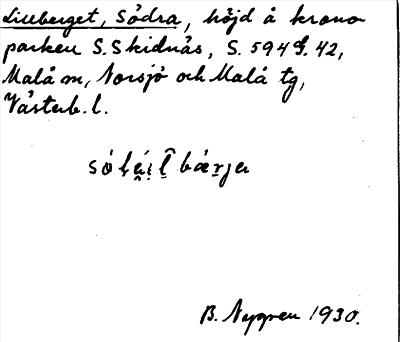 Liuberget, Södra, höjd å krono
parken S. Skidnäs, S. 594 f. 42,
Malå sn, Norsjö och Malå tg,
Västerb. l.
B. Nygren 1930.